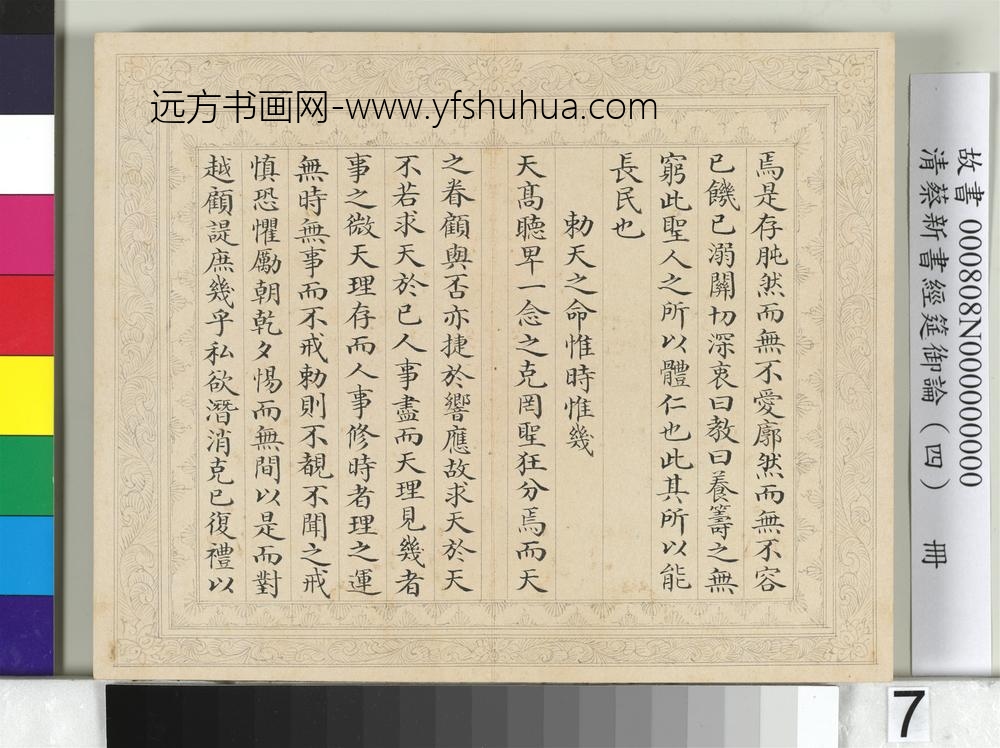 远方书画网-www.yfshuhua.com
焉是存肫然而無不愛廓然而無不容
已饑已溺關切深衷曰教曰養籌之無
窮此聖人之所以體仁也此其所以能
長民也
勅天之命惟時惟幾
天髙聽卑一念之克罔聖狂分焉而天
之眷顧與否亦捷於響應故求天於天
不若求天於已人事盡而天理見幾者
事之微天理存而人事修時者理之運
無時無事而不戒勅則不覩不聞之戒
慎恐懼勵朝乾夕惕而無間以是而對
越顧諟庶幾乎私欲潛消克已復禮以
故書 000808N000000000
清蔡新書經筵御論（四） 冊
7